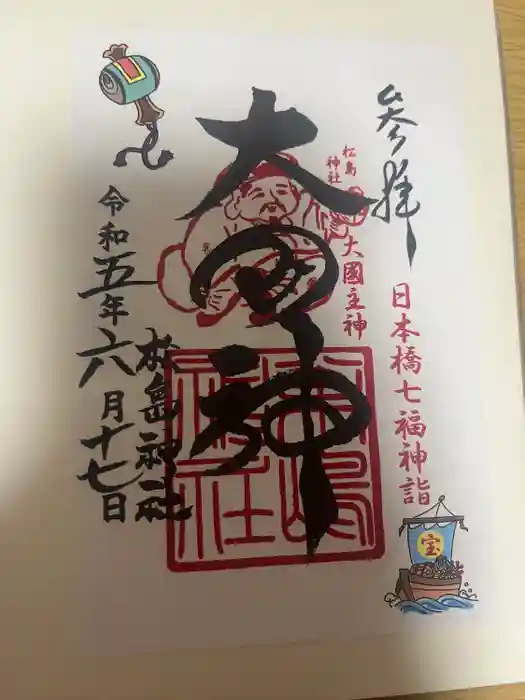 参拝
日本橋七福神詣
宝
松島
神社
大國主神
大国神
松島神社
松島
神社
令和五年六月十七日